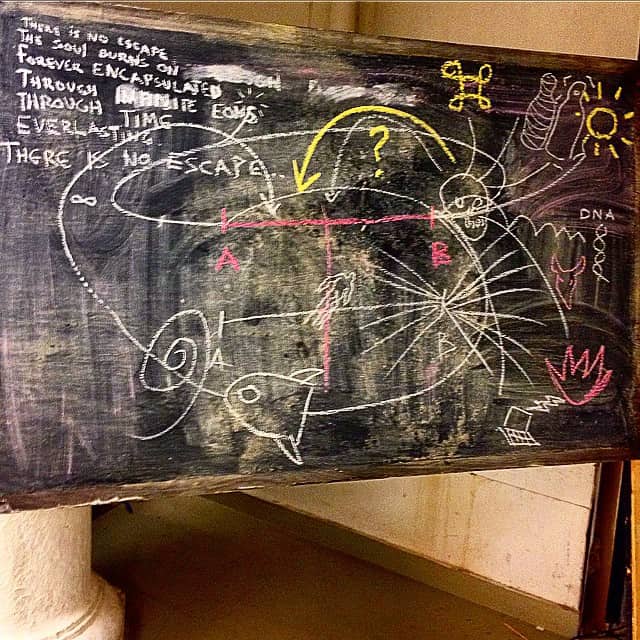 THERE IS NO ESCAPE
THE SOUL BURNS ON
FOREVER ENCAPSULATED
THROUGH
THROUGH INFINITE EONS
TIME
EVERLASTING
THERE IS NO ESCAPE...
?
∞
A
B
DNA
A
B